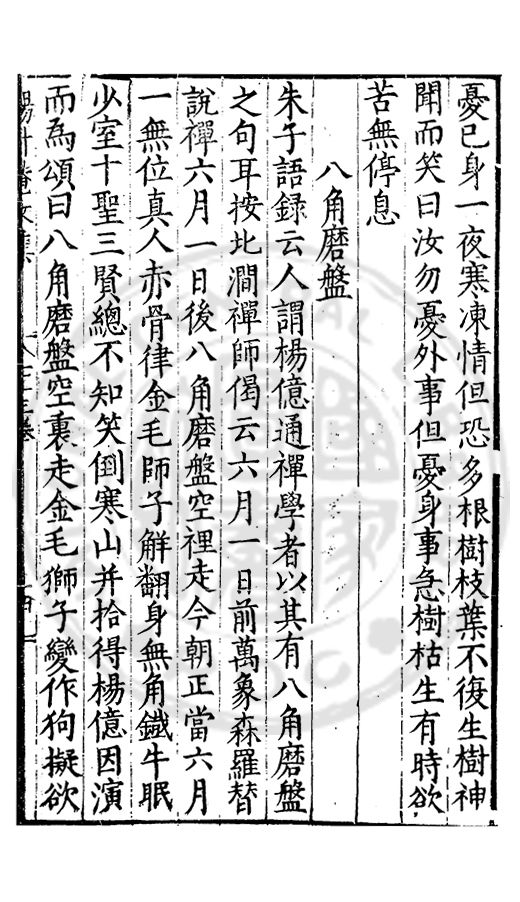 憂已身一夜寒凍情但恐多根樹枝葉不復生樹神
聞而笑曰汝勿憂外事但憂身事急樹枯生有時欲
苦無停息
八角磨盤
朱子語録云人謂楊億通禪學者以其有八角磨盤
之句耳按北澗禪師偈云六月一日前萬象森羅替
說禪六月一日後八角磨盤空裡走今朝正當六月
一無位真人赤骨律金毛師子解翻身無角鐡牛眠
少室十聖三賢總不知笑倒寒山并拾得楊億因演
而為頌曰八角磨盤空裏走金毛獅子變作狗擬欲